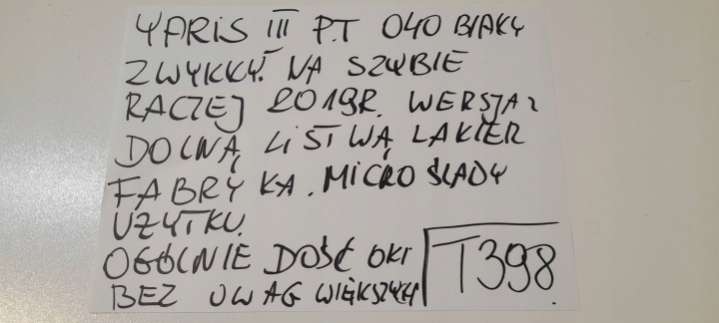 YARIS III P.T 040 BIAŁY
ZWYKŁY. NA SZYBIE
RACZEJ 2019R. WERSJA Z
DOLNĄ LISTWĄ LAKIER
FABRYKA. MICRO ŚLADY
UŻYTKU.
OGÓLNIE DOŚĆ OK!
BEZ UWAG WIĘKSZYCH
T398.